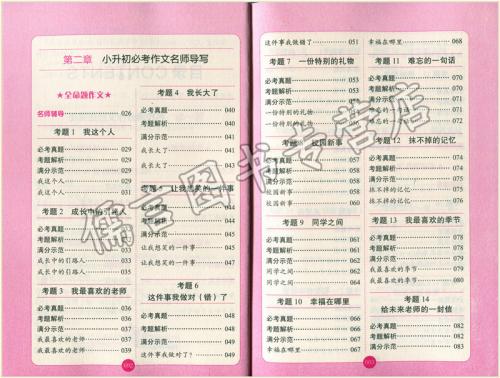 第二章 小升初必考作文名师导写
★全命题作文★
名师辅导 026
考题 1 我这个人
必考真题 029
考题解析 029
满分示范 029
我这个人 029
我这个人 031
考题 2 成长中的引路人
必考真题
考题解析
满分示范
成长中的引路人 033
成长中的引路人 035
考题 3 我最喜欢的老师
必考真题 036
考题解析 036
满分示范 037
我最喜欢的老师 037
我最喜欢的老师 039
考题 4 我长大了
必考真题 040
考题解析 040
满分示范 041
我长大了 041
我长大了
考题 5 让我想笑的一件事
必考真题
考题解析 044
满分示范 045
让我想笑的一件事 045
让我想笑的一件事 047
考题 6
这件事我做对(错)了
必考真题 048
考题解析 048
满分示范 049
这件事我做对了? 049
002
这件事我做错了 051
考题 7 一份特别的礼物
必考真题
考题解析
满分示范
一份特别的礼物
一份特别的礼物
考题 8 校园新事
必考真题
考题解析
满分示范
校园新事
校园新事
考题 9 同学之间
必考真题
考题解析
满分示范 062
同学之间 062
同学之间 064
考题 10 幸福在哪里
必考真题 066
考题解析 066
满分示范 067
幸福在哪里 067
幸福在哪里 068
考题 11 难忘的一句话
必考真题 070
考题解析 070
满分示范 071
难忘的一句话 071
难忘的一句话
考题 12 抹不掉的记忆
必考真题 074
考题解析 074
满分示范 075
抹不掉的记忆
抹不掉的记忆 076
考题 13 我最喜欢的季节
必考真题 078
考题解析 078
满分示范 079
我最喜欢的季节 079
我最喜欢的季节 080
考题 14
给未来老师的一封信
必考真题 082
考题解析 082
满分示范 083
003
儒言图书专营店